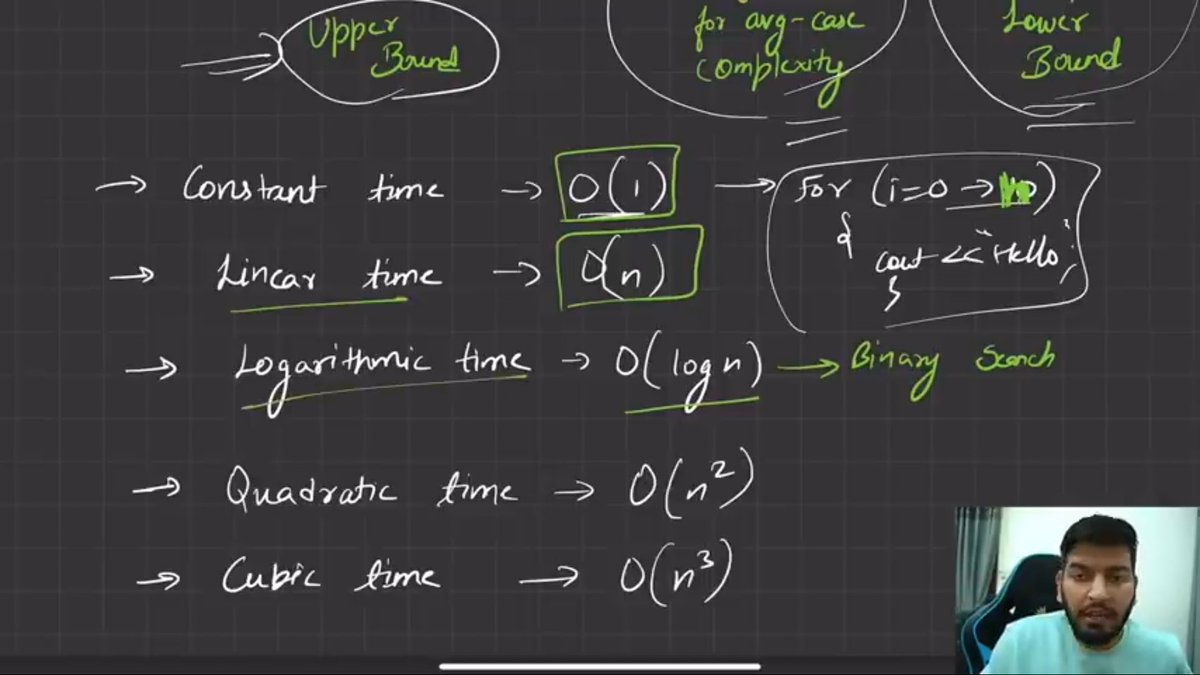 Upper
Bound
for avg-case
complexity
Lower
Bound
→ Constant time → O(1) → for (i=0 →
{
cout << "Hello";
}
→ Linear time → O(n)
→ Logarithmic time → O(log n) → Binary Search
→ Quadratic time → O(n²)
→ Cubic time → O(n³)